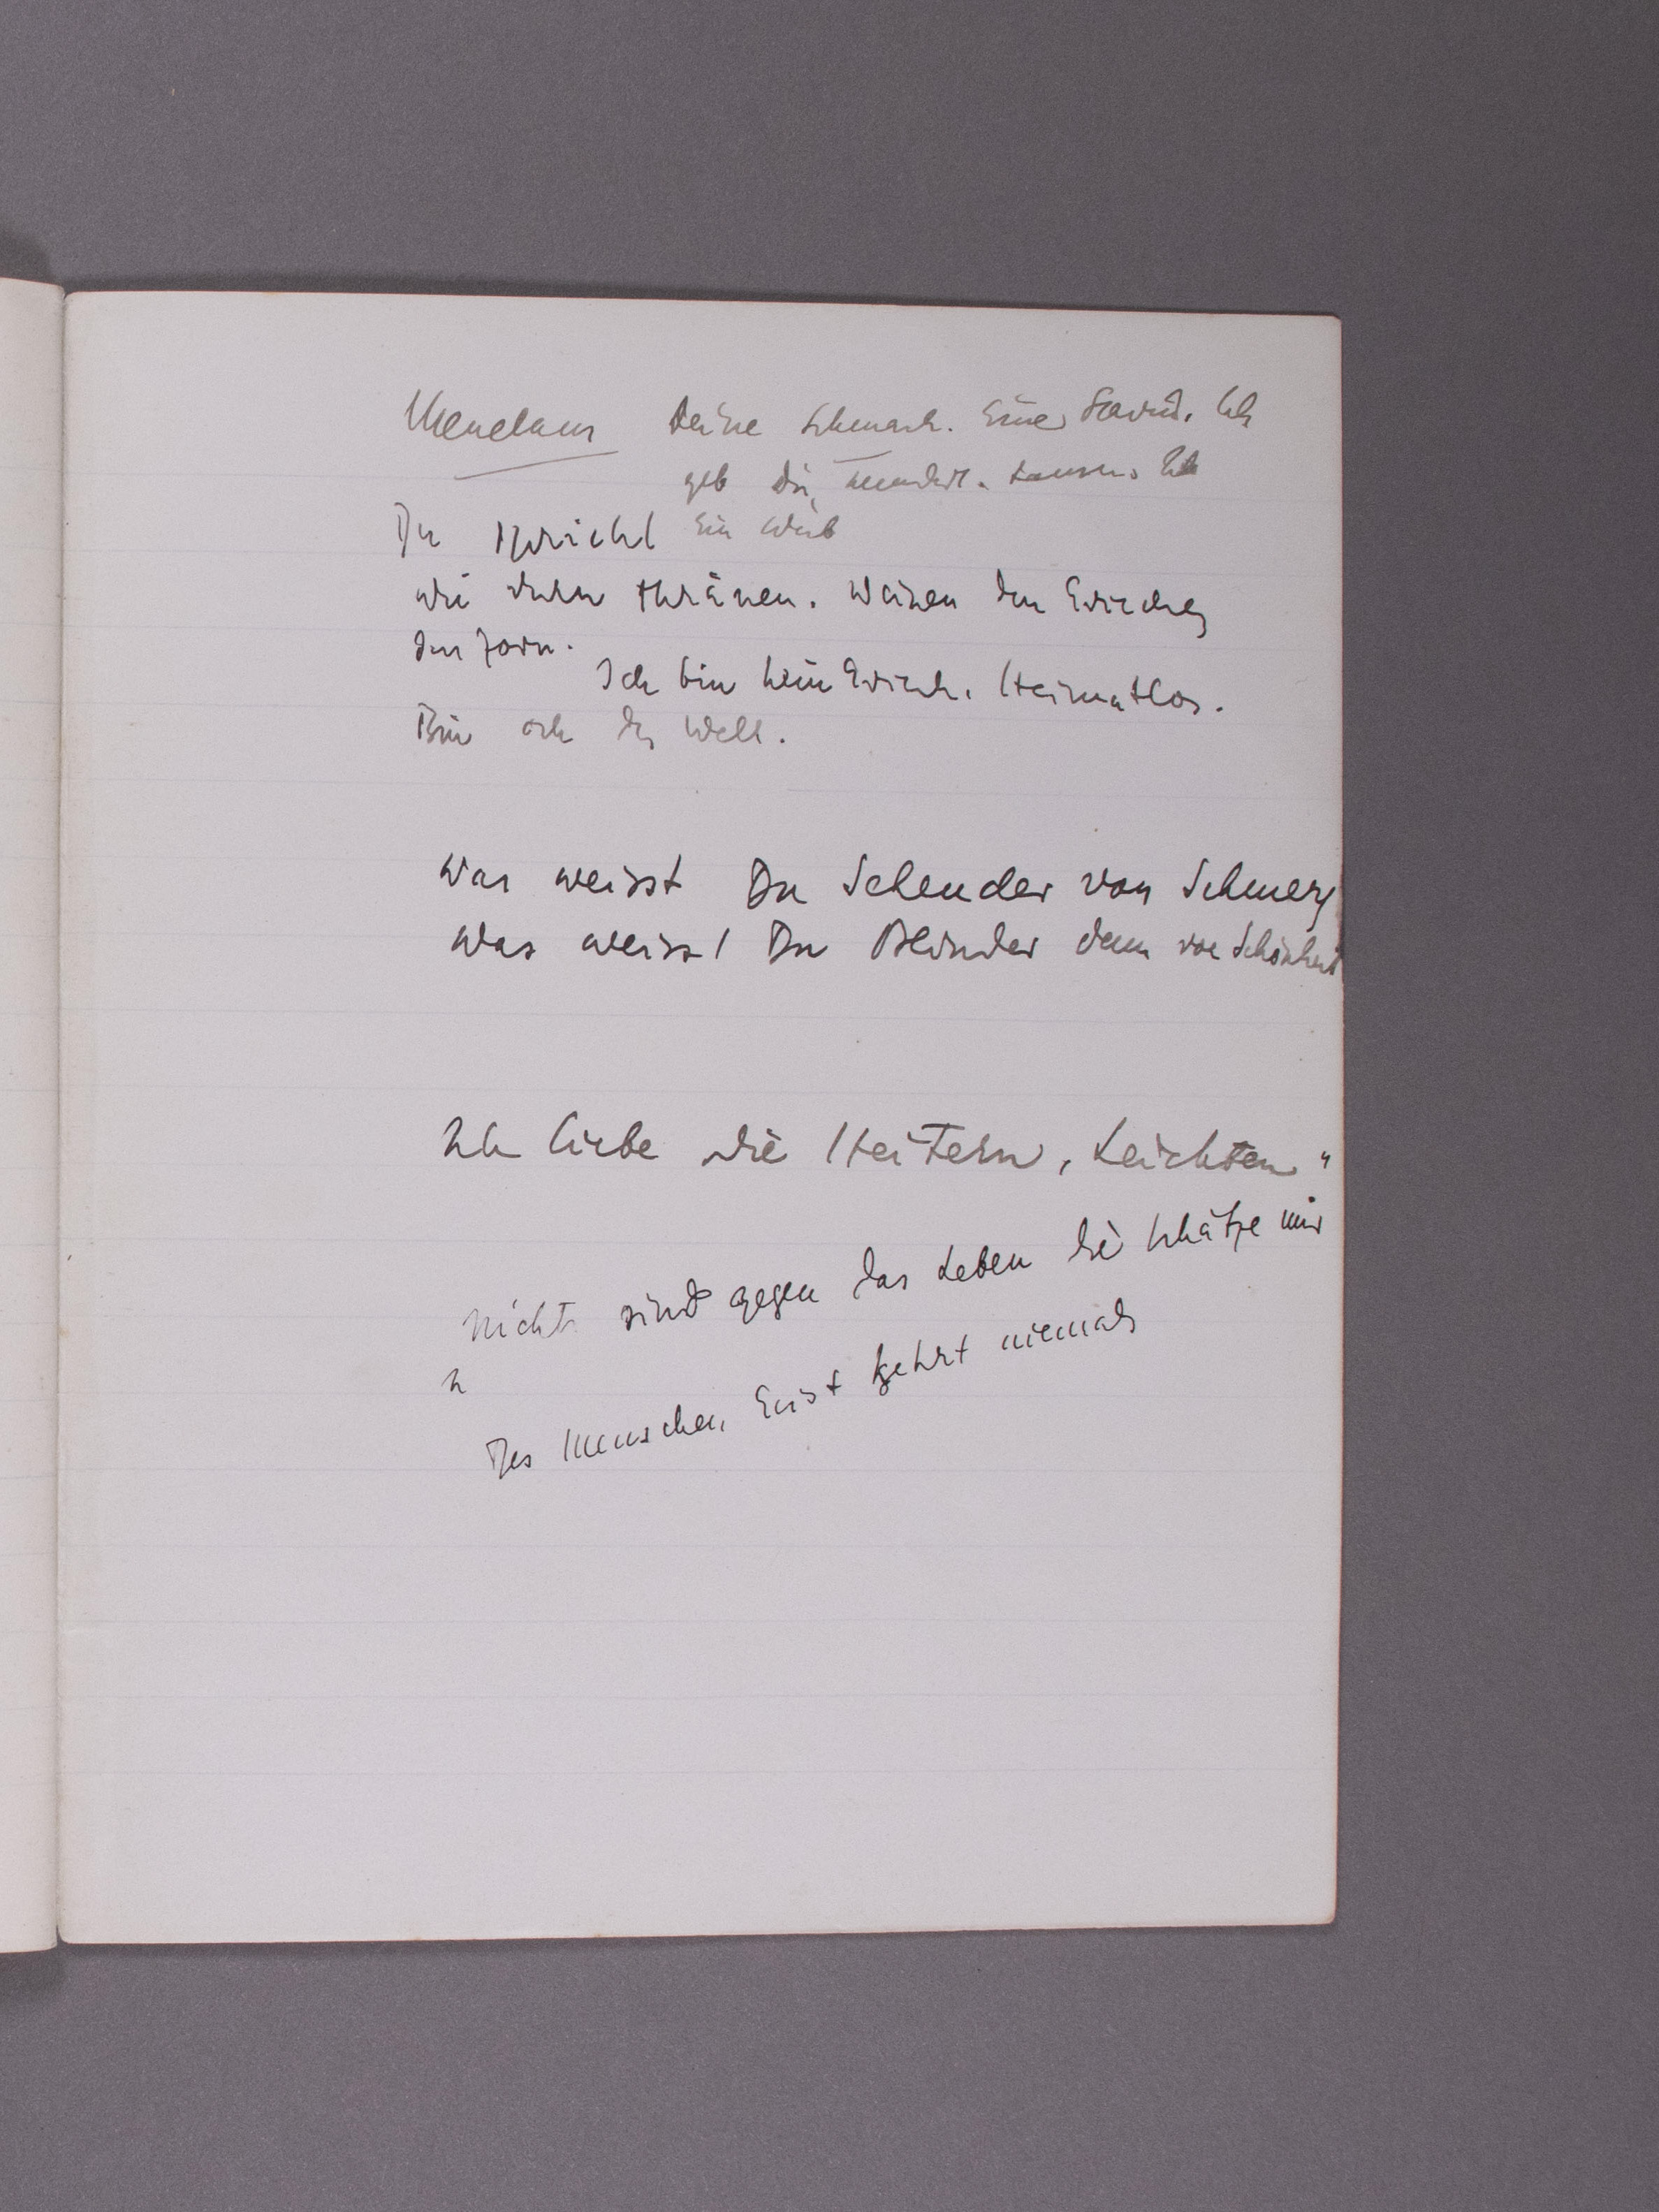 Menelaus Deine Schmach. Eine Sclavin. Ich
geb Dir, hundert. tausend. Ich
Du sprichst Ein Weib
wie thränen. Weinen den Griechen
den Zorn.
Ich bin kein Griech. Heimatlos.
Bin der Welt.
Was weisst Du Sehender von Schmerz
Was weisst Du Blinder denn von Schönheit
Ich liebe die Heitern, Leichten"
Nichts sind gegen das Leben die Schätze mir
h
Des Menschen Geist kehrt niemals